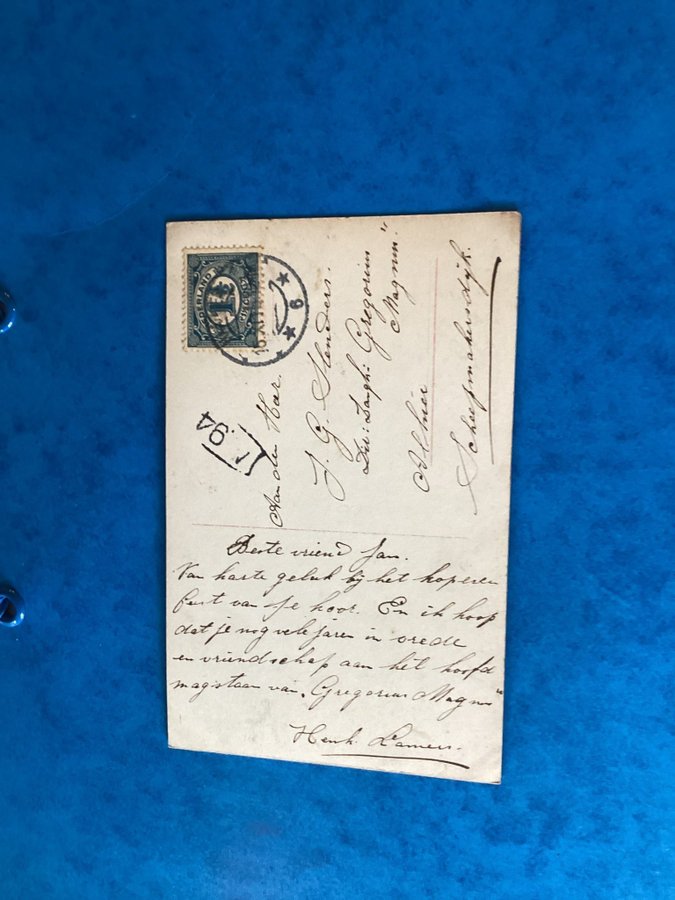 Aan den Heer
J. G. Slenders.
Dir: Zangk: Gregorius
Magnus."
Alhier
Scheepmakersdijk.
NEDERLAND
1½
CENT
6
94
Beste vriend Jan.
Van harte geluk bij het koperen
feest van je hoor. En ik hoop
dat je nog vele jaren in vrede
en vriendschap aan het hoofd
mag staan van „Gregorius Magnus"
Henk Lamers.